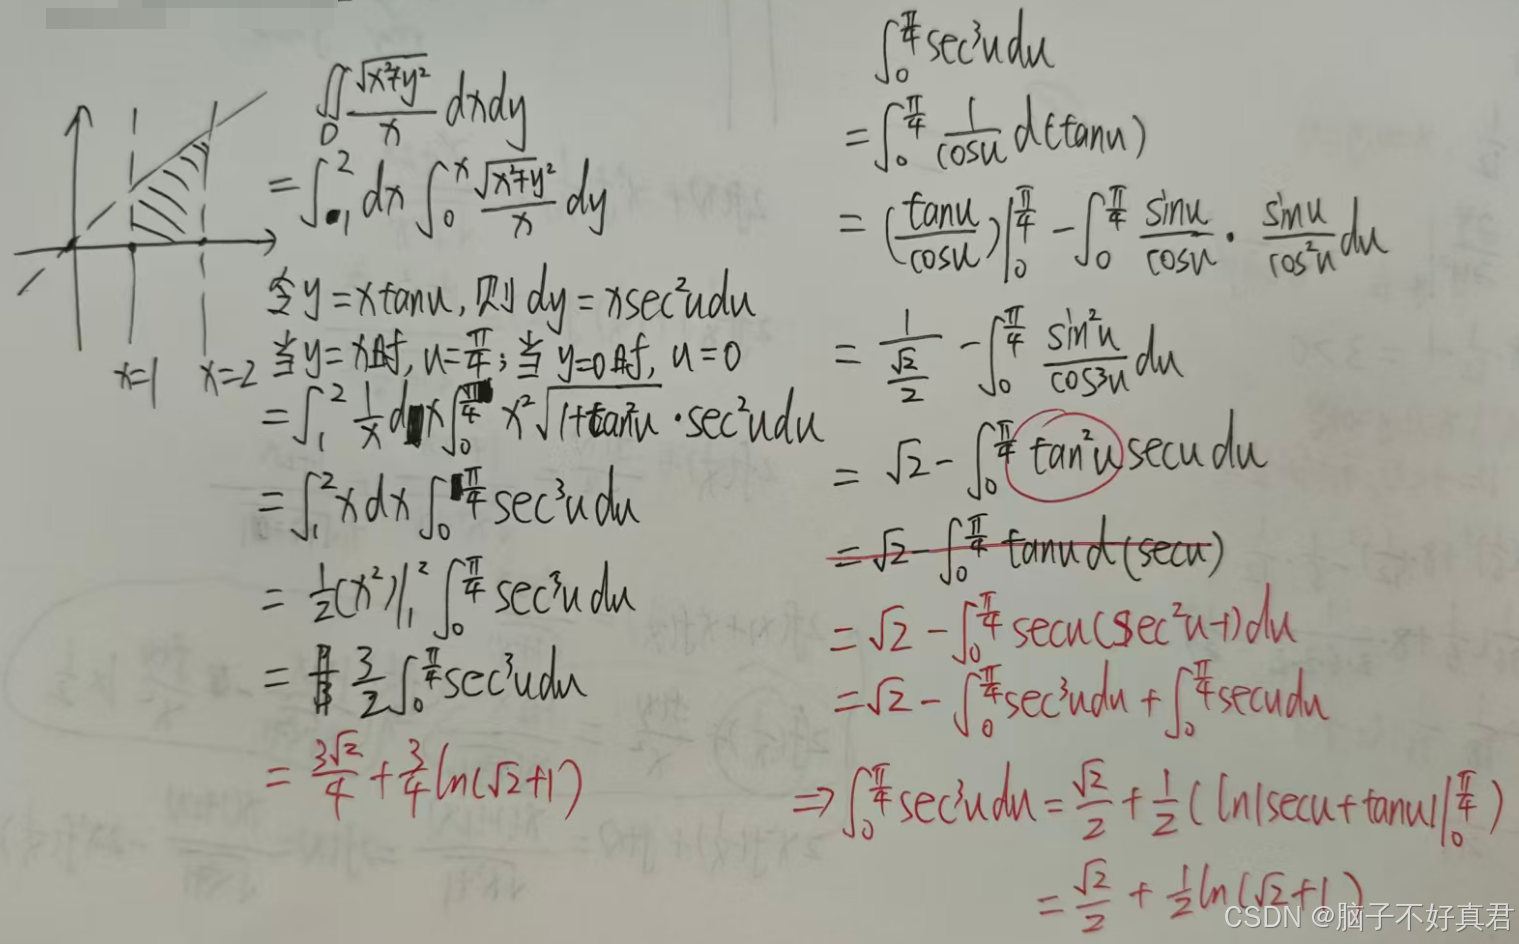 ∬_D √(x²+y²)/x dxdy
= ∫_1^2 dx ∫_0^x √(x²+y²)/x dy
令 y = x tanu, 则 dy = x sec²u du
当 y = x 时, u = π/4; 当 y=0 时, u = 0
x=1 x=2
= ∫_1^2 1/x dx ∫_0^{π/4} x² √(1+tan²u) · sec²u du
= ∫_1^2 x dx ∫_0^{π/4} sec³u du
= 1/2 (x²)|_1^2 ∫_0^{π/4} sec³u du
= 3/2 ∫_0^{π/4} sec³u du
= 3√2/4 + 3/4 ln(√2+1)
∫_0^{π/4} sec³u du
= ∫_0^{π/4} 1/cosu d(tanu)
= (tanu/cosu)|_0^{π/4} - ∫_0^{π/4} sinu/cosu · sinu/cos²u du
= 1/(√2/2) - ∫_0^{π/4} sin²u/cos³u du
= √2 - ∫_0^{π/4} tan²u secu du
= √2 - ∫_0^{π/4} tanu d(secu)
= √2 - ∫_0^{π/4} secu(sec²u-1)du
= √2 - ∫_0^{π/4} sec³u du + ∫_0^{π/4} secu du
⇒ ∫_0^{π/4} sec³u du = √2/2 + 1/2 (ln|secu+tanu||_0^{π/4})
= √2/2 + 1/2 ln(√2+1)
CSDN @脑子不好真君